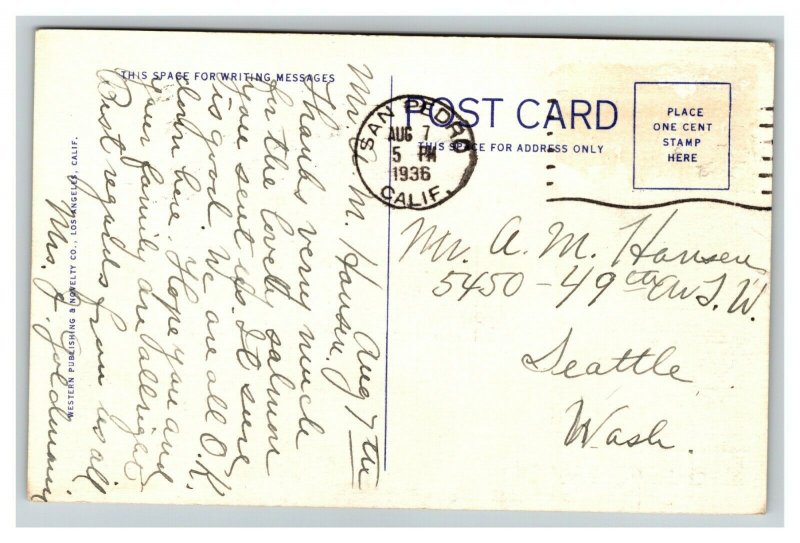 THIS SPACE FOR WRITING MESSAGES
Aug 7 th
Mr. A. M. Hansen,
Thanks very much
for the lovely salmon
you sent us. It sure
is good. We are all O.K.
down here. Hope you and
your family are allright.
Best regards from us all
Mrs. J. Goldmann
WESTERN PUBLISHING & NOVELTY CO., LOS ANGELES, CALIF.
POST CARD
THIS SPACE FOR ADDRESS ONLY
SAN PEDRO
AUG 7
5 PM
1936
CALIF.
PLACE
ONE CENT
STAMP
HERE
Mr. A. M. Hansen
5450-49th Av S.W.
Seattle
Wash.